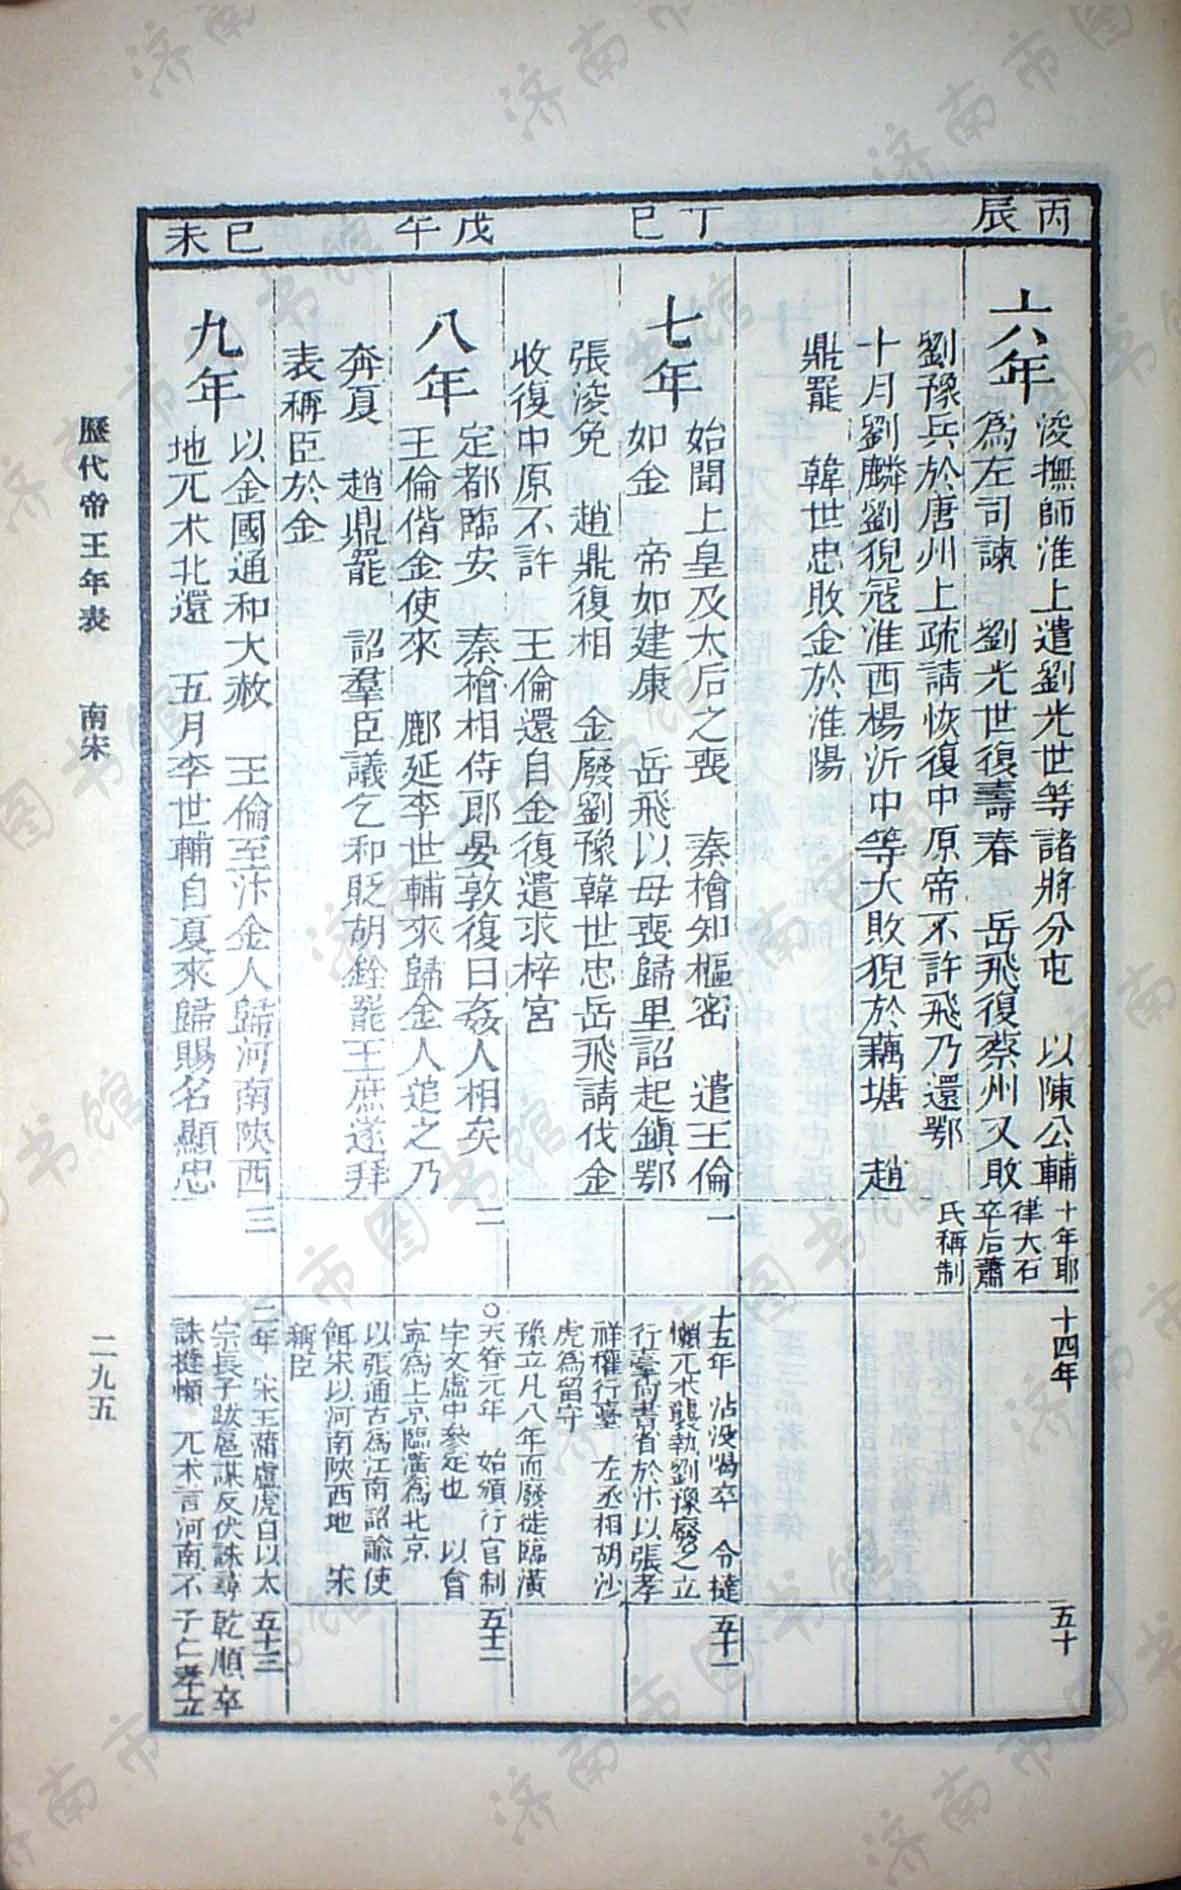 丙辰
六年
浚撫師淮上遣劉光世等諸將分屯　以陳公輔
為左司諫　劉光世復壽春　岳飛復蔡州又敗
劉豫兵於唐州上疏請恢復中原帝不許飛乃還鄂
十月劉麟劉猊寇淮西楊沂中等大敗猊於藕塘　趙
鼎罷　韓世忠敗金於淮陽
十年耶
律大石
卒后蕭
氏稱制
十四年
五十
丁巳
七年
始聞上皇及太后之喪　秦檜知樞密　遣王倫
如金　帝如建康　岳飛以母喪歸里詔起鎮鄂
張浚免　趙鼎復相　金廢劉豫韓世忠岳飛請伐金
收復中原不許　王倫還自金復遣求梓宮
一
十五年　沾没喝卒　令撻
懶兀术襲執劉豫廢之立
行臺尚書省於汴以張孝
祥權行臺　左丞相胡沙
虎為留守
豫立凡八年而廢徙臨潢
五十一
戊午
八年
定都臨安　秦檜相侍郎晏敦復曰姦人相矣
王倫偕金使來　鄜延李世輔來歸金人追之乃
奔夏　趙鼎罷　詔羣臣議乞和貶胡銓罷王庶遂拜
表稱臣於金
二
○天眷元年　始頒行官制
宇文虛中參定也　以會
寧為上京臨潢為北京
以張通古為江南詔諭使
餌宋以河南陝西地　宋
稱臣
五十二
己未
九年
以金國通和大赦　王倫至汴金人歸河南陝西
地兀术北還　五月李世輔自夏來歸賜名顯忠
三
二年　宋王蒲盧虎自以太
宗長子跋扈謀反伏誅尋
誅撻懶　兀术言河南不
五十三
乾順卒
子仁孝立
歷代帝王年表　南宋
二九五
济南市图书馆